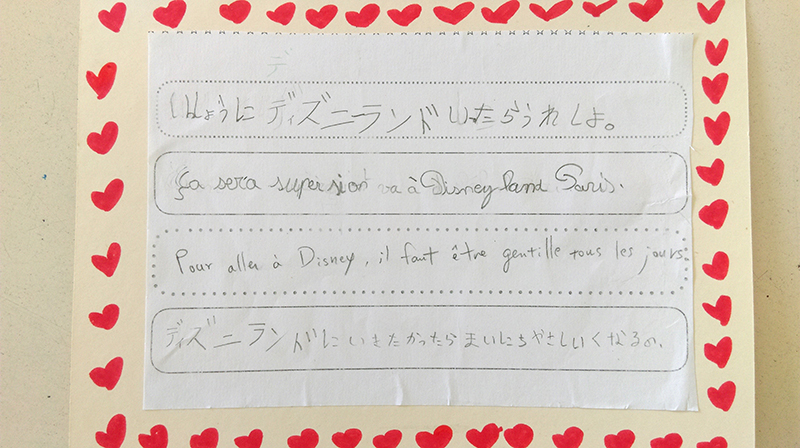 デ
いっしょうに ディズニーランド いったらうれしよ。
Ça sera super si on va à Disneyland Paris.
Pour aller à Disney, il faut être gentille tous les jours.
ディズニランドにいきたかったらまいにちやさしいくなるの。